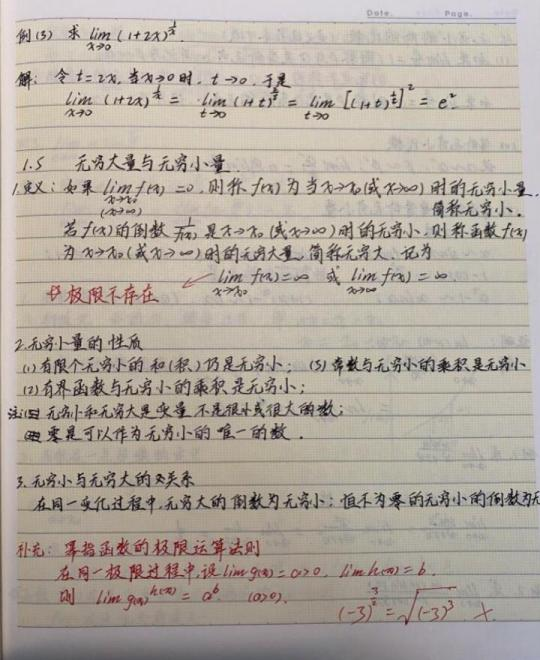 Date. Page.
例(3) 求 lim_{x→0} (1+2x)^{1/x}.
解: 令 t=2x, 当x→0时, t→0, 于是
lim_{x→0} (1+2x)^{1/x} = lim_{t→0} (1+t)^{2/t} = lim_{t→0} [(1+t)^{1/t}]^2 = e^2
1.5 无穷大量与无穷小量.
1.定义: 如果 lim_{x→x₀ (x→∞)} f(x) = 0, 则称 f(x) 为当x→x₀(或x→∞) 时的无穷小量,
简称无穷小.
若 f(x) 的倒数 1/f(x) 是 x→x₀ (或x→∞) 时的无穷小, 则称函数 f(x)
为 x→x₀(或x→∞) 时的无穷大量, 简称无穷大, 记为
lim_{x→x₀} f(x)=∞ 或 lim_{x→∞} f(x)=∞
极限不存在
2.无穷小量的性质
(1)有限个无穷小的和(积)仍是无穷小; (3) 常数与无穷小的乘积是无穷小
(2)有界函数与无穷小的乘积是无穷小;
注: 无穷小和无穷大是变量 不是很小或很大的数;
零是可以作为无穷小的唯一的数.
3.无穷小与无穷大的关系
在同一变化过程中,无穷大的倒数为无穷小; 恒不为零的无穷小的倒数为无
补充: 幂指函数的极限运算法则
在同一极限过程中,设 lim g(x)=a>0, lim h(x)=b.
则 lim g(x)^{h(x)} = a^b. (a>0).
(-3)^{3/2} = √(-3)^3 ×